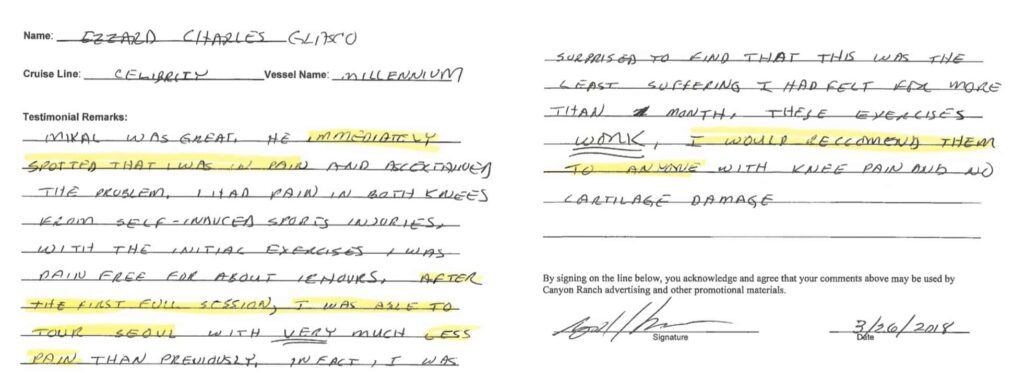 Name: EZZARD CHARLES GLASCO
Cruise Line: CELIBRITY Vessel Name: MILLENNIUM
Testimonial Remarks:
MIKAL WAS GREAT. HE IMMEDIATELY
SPOTTED THAT I WAS IN PAIN AND ASCERTAINED
THE PROBLEM. I HAD PAIN IN BOTH KNEES
FROM SELF-INDUCED SPORTS INJURIES.
WITH THE INITIAL EXERCISES I WAS
PAIN FREE FOR ABOUT HOURS. AFTER
THE FIRST FULL SESSION, I WAS ABLE TO
TOUR SEOUL WITH VERY MUCH LESS
PAIN THAN PREVIOUSLY. IN FACT, I WAS
SURPRISED TO FIND THAT THIS WAS THE
LEAST SUFFERING I HAD FELT FOR MORE
THAN MONTH. THESE EXERCISES
WORK, I WOULD RECCOMEND THEM
TO ANYONE WITH KNEE PAIN AND NO
CARTILAGE DAMAGE
By signing on the line below, you acknowledge and agree that your comments above may be used by
Canyon Ranch advertising and other promotional materials.
3/26/2018
Signature Date